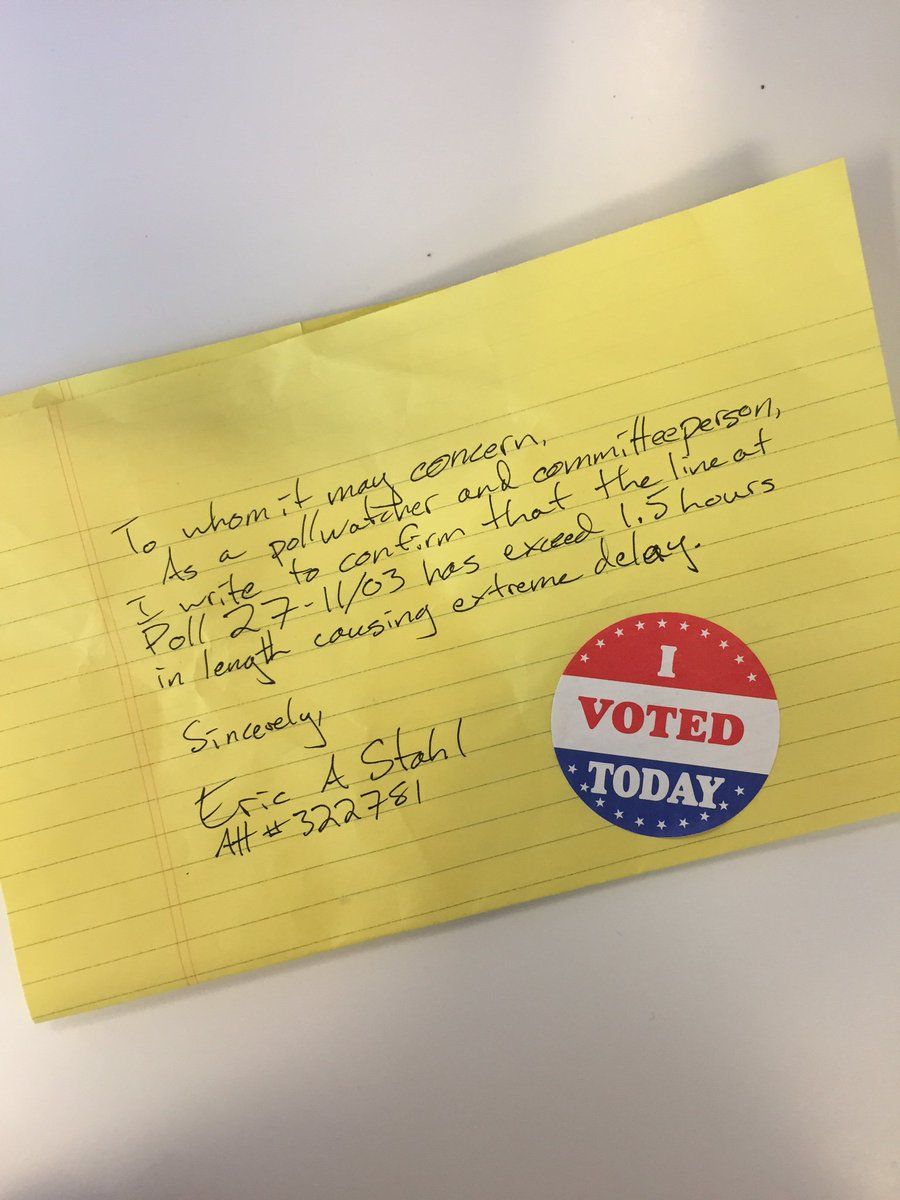 To whom it may concern,
As a pollwatcher and committeeperson,
I write to confirm that the line at
Poll 27-11/03 has exceed 1.5 hours
in length causing extreme delay.
Sincerely,
Eric A Stahl
Att # 322781
I
VOTED
TODAY